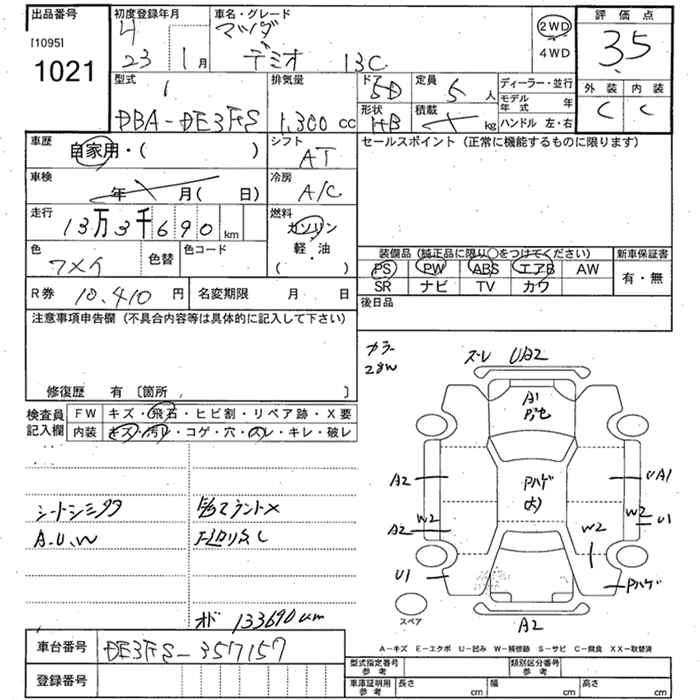 出品番号
[1095]
1021
初度登録年月
4
23 1月
車名・グレード
マツダ
デミオ 13C
2WD
4WD
評価点
3.5
外装 内装
C C
型式
DBA-DE3FS
排気量
1,300 cc
ドア
5D
定員
5 人
形状
HB
積載
kg
ディーラー・並行
モデル年式 年
ハンドル 左・右
車歴
自家用・( )
シフト
AT
セールスポイント (正常に機能するものに限ります)
車検
年 月( 日)
冷房
A/C
走行
13万3千690km
燃料
ガソリン
軽・油
( )
色
色替
色コード
装備品 (純正品に限り○をつけてください)
PS PW ABS エアB AW
SR ナビ TV カワ
新車保証書
有・無
R券
10,410円
名変期限 月 日
後日品
注意事項申告欄 (不具合内容等は具体的に記入して下さい)
修復歴 有 〔箇所 〕
検査員記入欄
FW キズ・飛石・ヒビ割・リペア跡・X要
内装 キズ・汚レ・コゲ・穴・スレ・キレ・破レ
カラー
28W
ズレ UA2
A1
A2
Pハゲ
UA1
A2 W2
W2 U1
W2
U1
Pハゲ
A2
スペア
A.U.W
オド 133690km
A-キズ E-エクボ U-凹み W-補修跡 S-サビ C-腐食 XX-取替済
車台番号
DE3FS-357157
登録番号
型式指定番号 参考
類別区分番号 参考
車庫証明用 参考
長さ cm 幅 cm 高さ cm